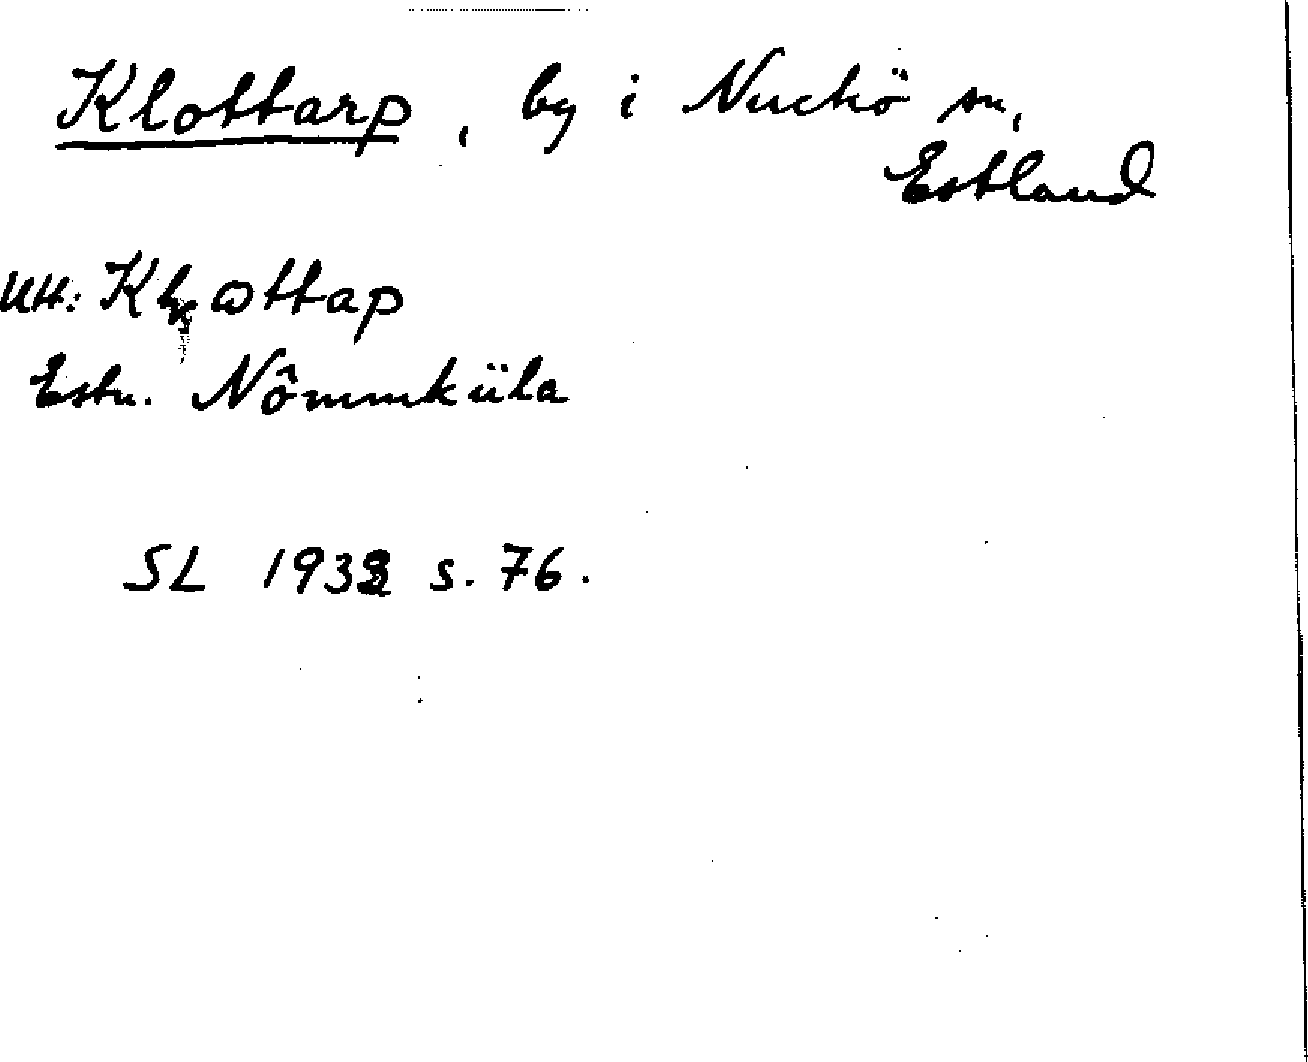 Klottarp, by i Nuckö sn,
Estland
Utt: Klottap
Estn. Nômmküla
SL 1933 s. 76.